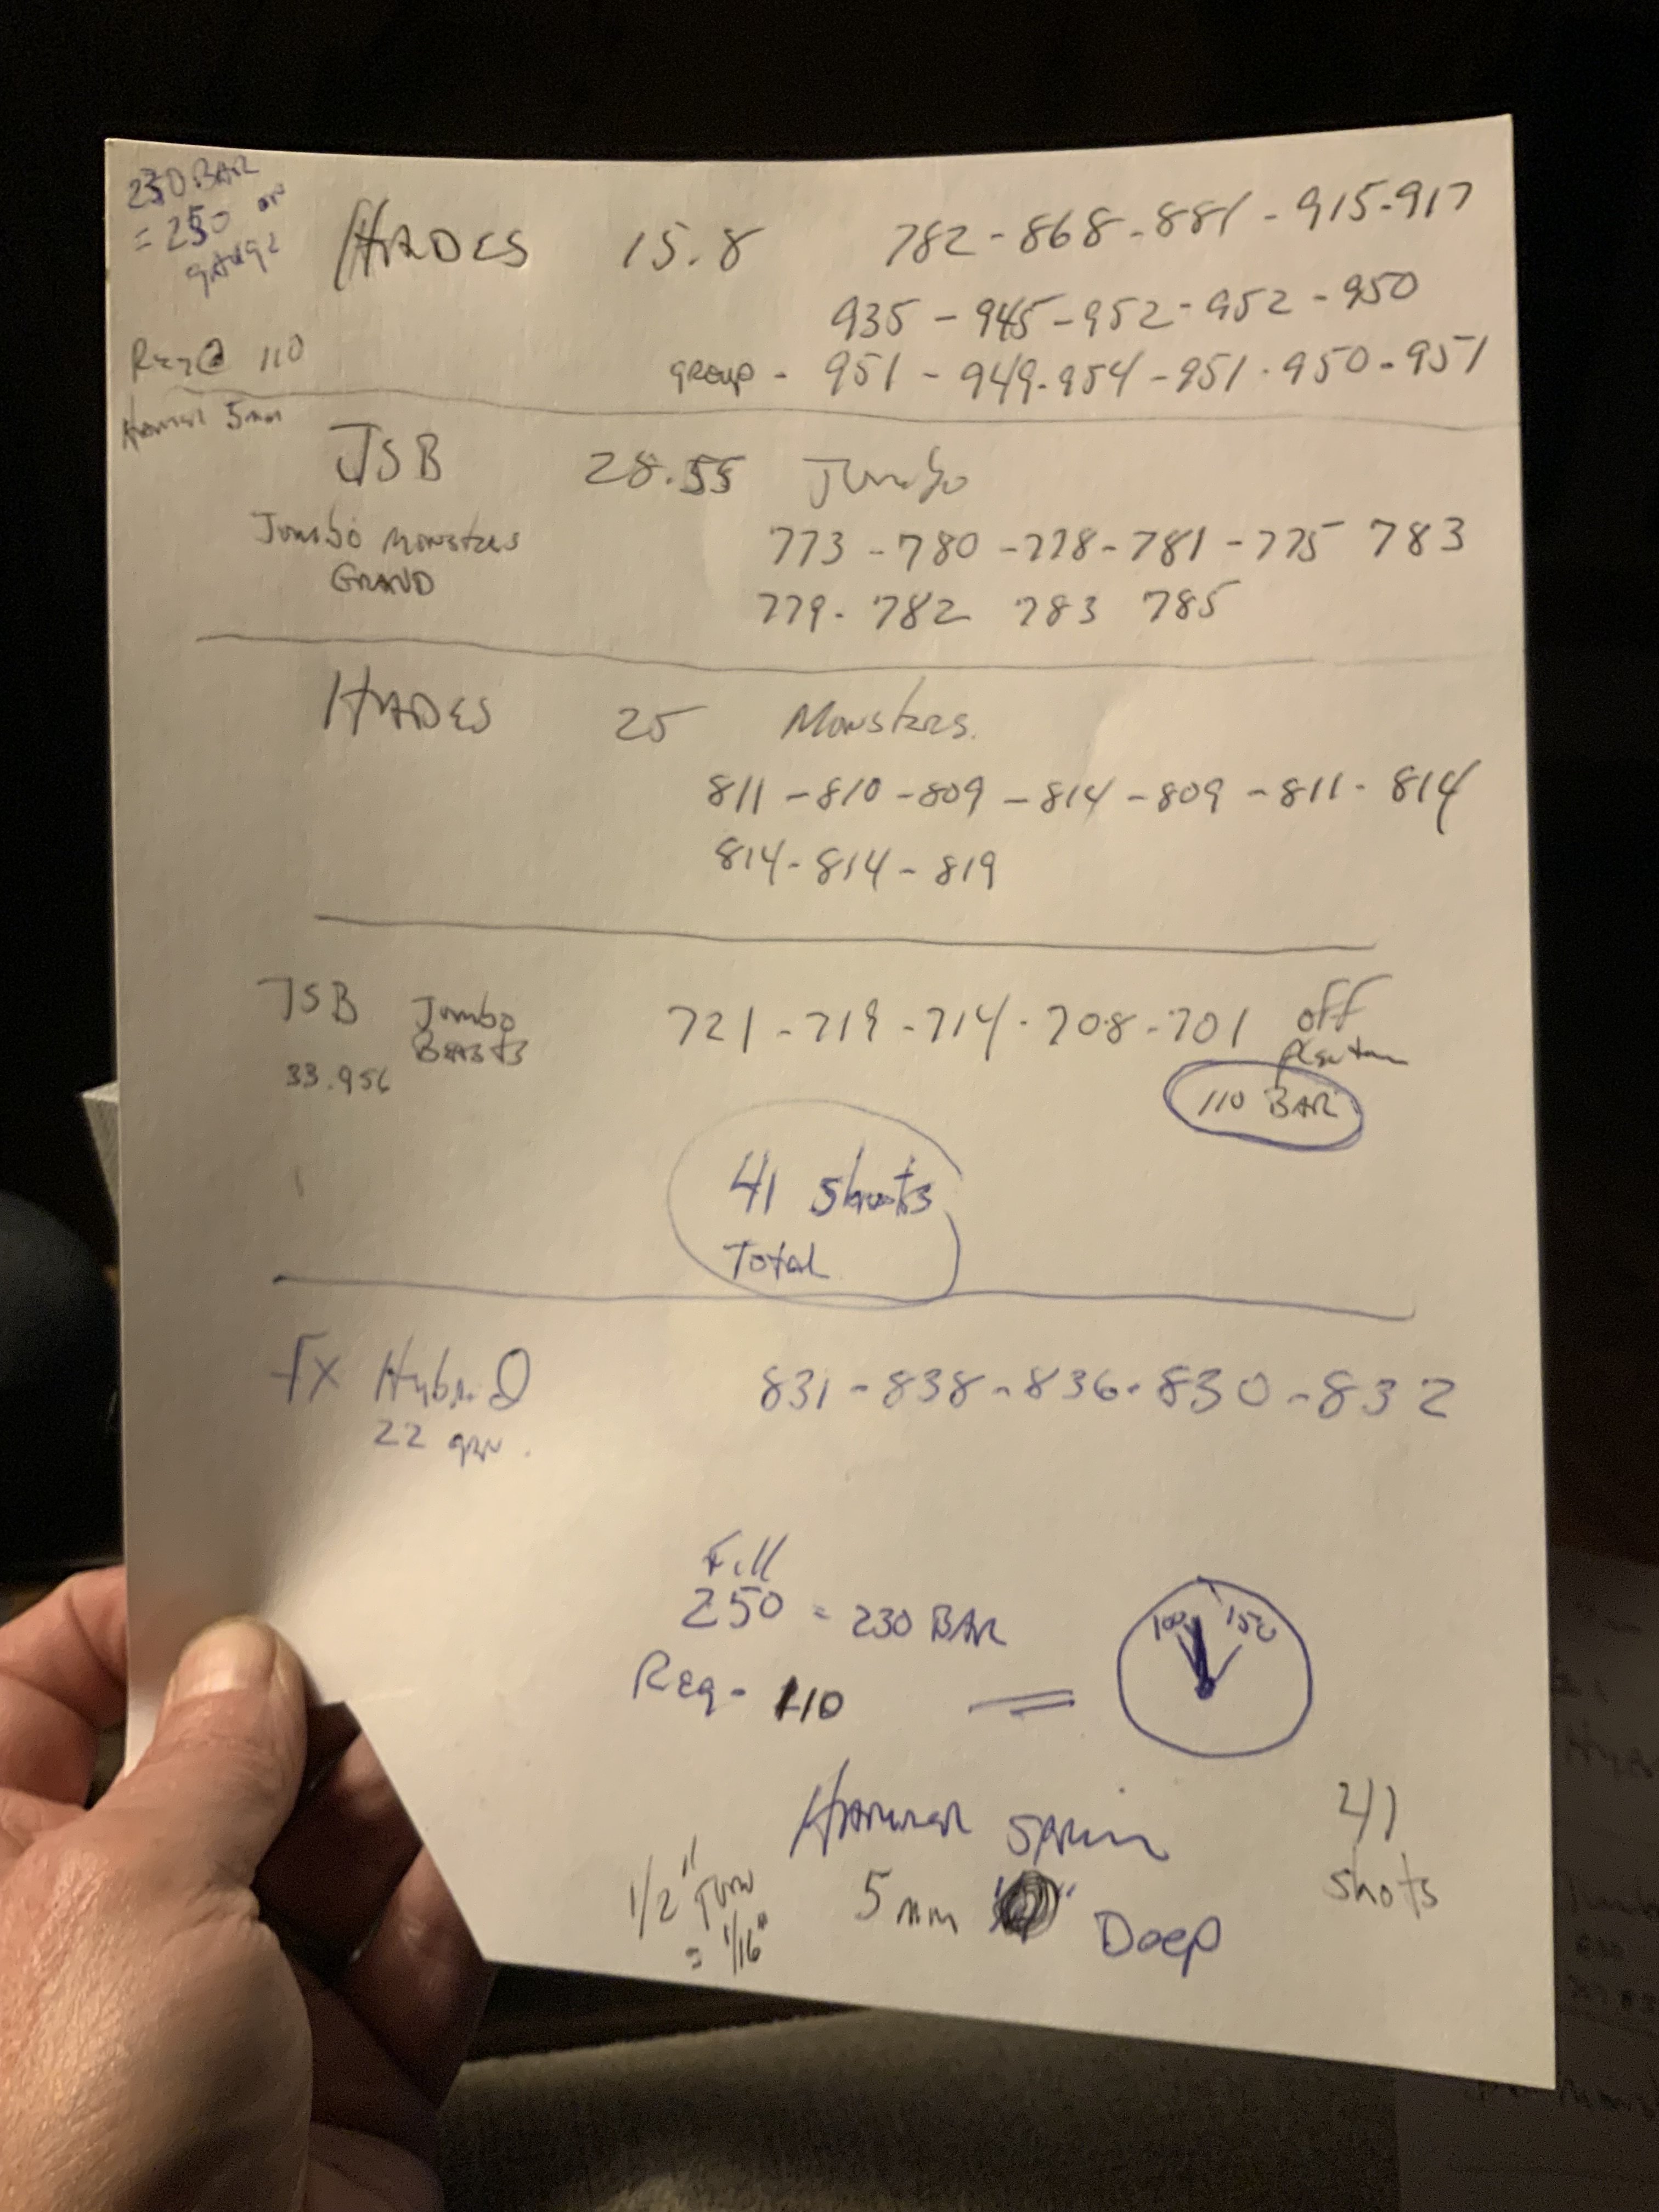 230 BAR
= 250 on
gauge
Reg @ 110
Hammer 5mm
HADES 15.8 782 - 868 - 881 - 915 - 917
935 - 945 - 952 - 952 - 950
group - 951 - 949 - 954 - 951 - 950 - 951
JSB 28.55 Jumbo
Jumbo Monsters
GRAND
773 - 780 - 778 - 781 - 775 783
779 - 782 783 785
HADES 25 Monsters.
811 - 810 - 809 - 814 - 809 - 811 - 814
814 - 814 - 819
JSB Jumbo
Beasts
33.956
721 - 719 - 714 - 708 - 701 off
110 BAR
41 Shots
Total
FX Hybrid
22 grn.
831 - 838 - 836 - 830 - 832
Fill
250 = 230 BAR
Reg - 110 =
100 150
Hammer Sprin
5 mm Deep
1/2" Turn
= 1/16"
41
shots